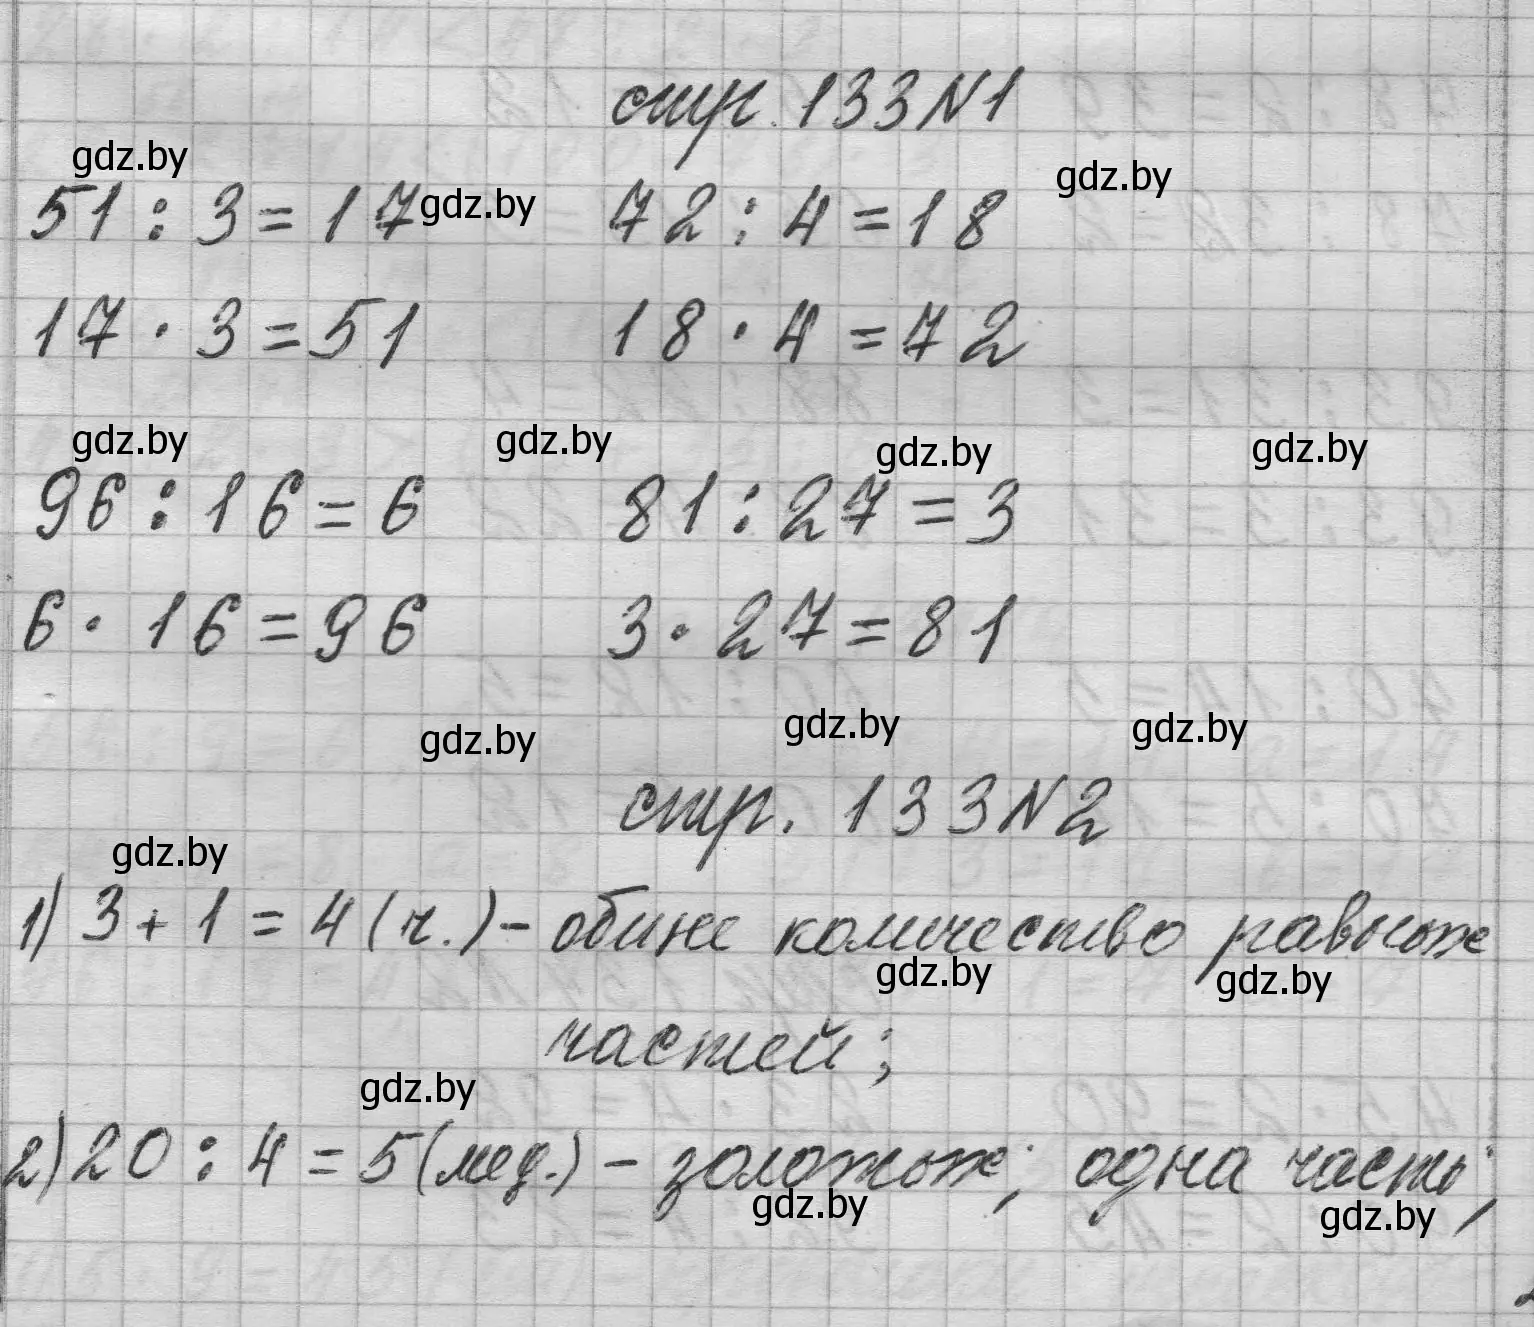 стр. 133 N 1
gdz.by
gdz.by
51 : 3 = 17 gdz.by 72 : 4 = 18
17 · 3 = 51 18 · 4 = 72
gdz.by gdz.by gdz.by gdz.by
96 : 16 = 6 81 : 27 = 3
6 · 16 = 96 3 · 27 = 81
gdz.by gdz.by gdz.by
стр. 133 N 2
gdz.by
1) 3 + 1 = 4 (ч.) - общее количество равных
gdz.by gdz.by
частей;
gdz.by
2) 20 : 4 = 5 (мед.) - золотых; одна часть;
gdz.by gdz.by